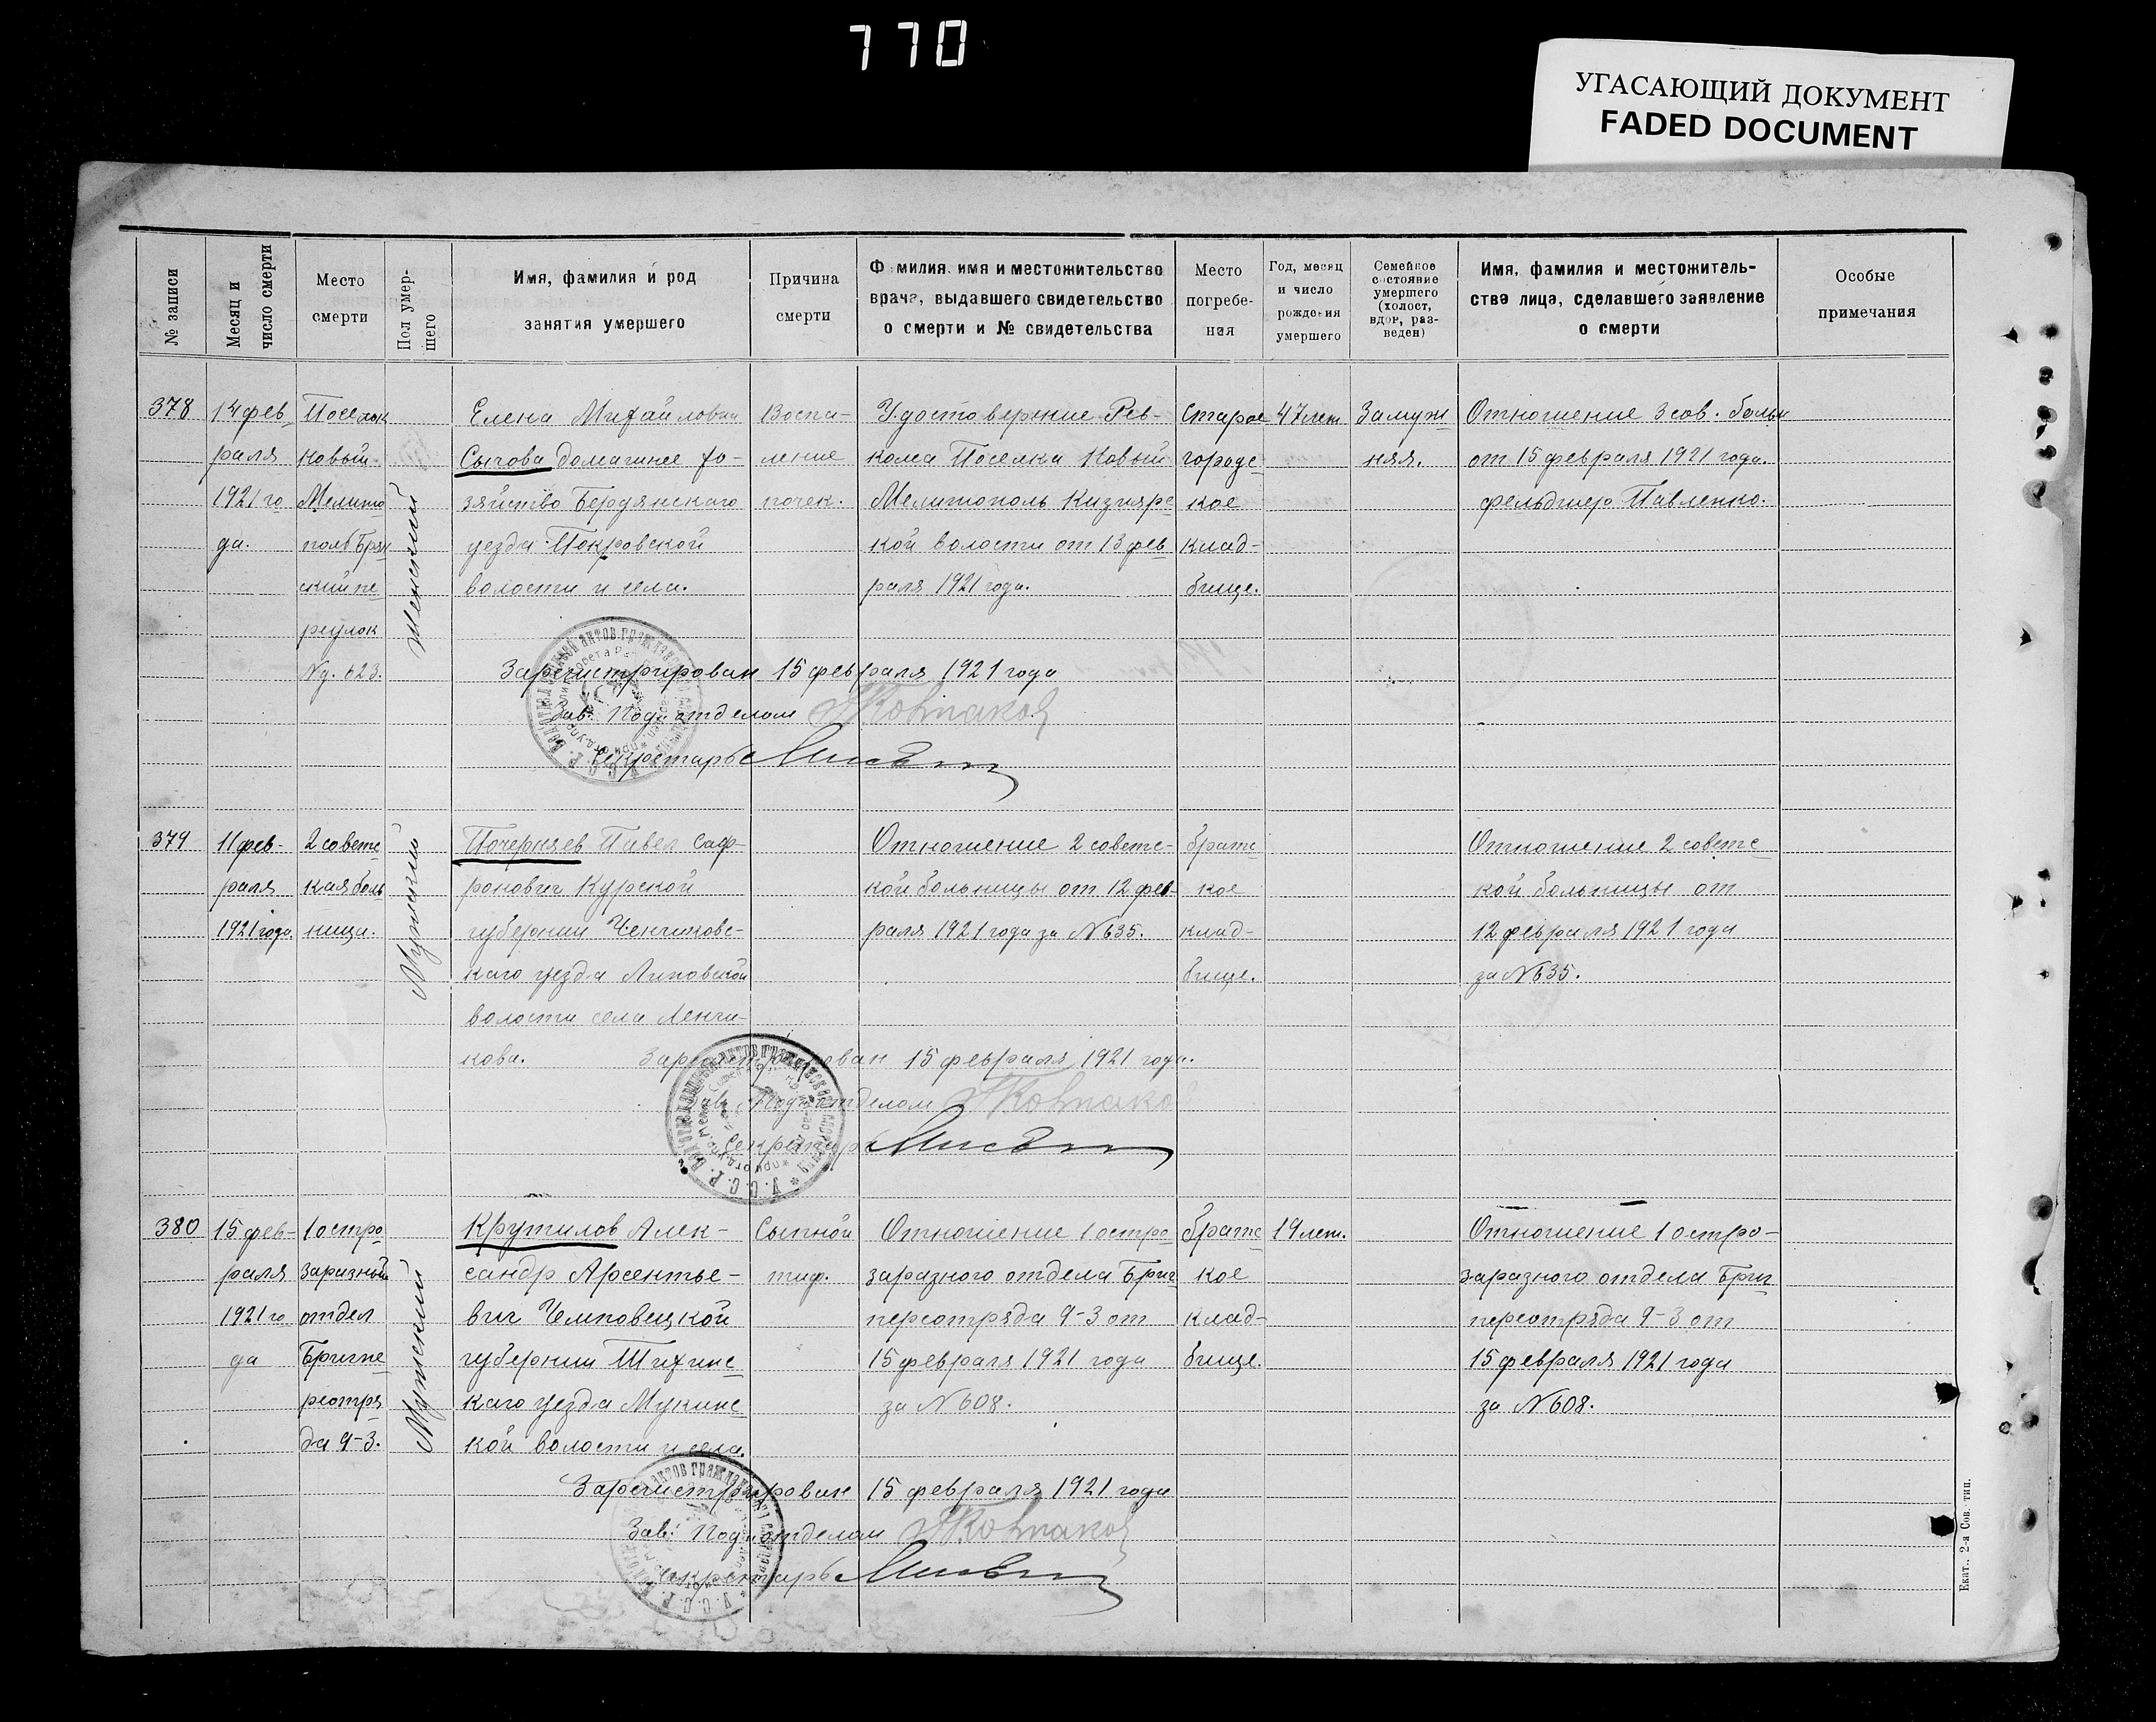 770
УГАСАЮЩИЙ ДОКУМЕНТ
FADED DOCUMENT
№ записи
Месяц и
число смерти
Место
смерти
Пол умер-
шего
Имя, фамилия и род
занятия умершего
Причина
смерти
Фамилия, имя и местожительство
врача, выдавшего свидетельство
о смерти и № свидетельства
Место
погребе-
ния
Год, месяц
и число
рождения
умершего
Семейное
состояние
умершего
(холост,
вдов, раз-
веден)
Имя, фамилия и местожитель-
ство лица, сделавшего заявление
о смерти
Особые
примечания
378
14 фев
раля
1921 го
да.
Поселок
Новый
Мелито
поль Брян
ский пе
реулок
№. 623.
Женский
Елена Михайловна
Сычова домашнее хо-
зяйство Бердянскаго
уезда Покровской
волости и села.
Воспа-
ление
почек.
Удостоверение Рев-
кома Поселка Новый
Мелитополь Кизиярс
кой волости от 13 фев
раля 1921 года.
Старое
городс
кое
клад-
бище.
47 лет
Замуж
няя.
Отношение 3 сов. больн
от 15 февраля 1921 года.
фельдшер Павленко.
Зарегистрирован 15 февраля 1921 года
Зав. Подотделом
Секретарь
379
11 фев-
раля
1921 года.
2 советс
кая боль
ница.
Мужской
Почерняев Павел Саф-
ронович Курской
губернии Ченчиковс-
каго уезда Липовской
волости села Ленчи-
кова.
Отношение 2 советс-
кой больницы от 12 фев-
раля 1921 года за №635.
братс
кое
клад-
бище.
Отношение 2 советс
кой больницы от
12 февраля 1921 года
за №635.
Зарегистрирован 15 февраля 1921 года.
Зав. Подотделом
Секретарь
380
15 фев-
раля
1921 го
да
1 остро
заразный
отдел
Бригпе
реотря
да 9-3.
Мужской
Крутилов Алек-
сандр Арсентье-
вич Чемповецкой
губернии Тихинс
каго уезда Мукинс
кой волости и села.
Сыпной
тиф.
Отношение 1 остро
заразного отдела Бриг
переотряда 9-3 от
15 февраля 1921 года
за №608.
братс
кое
клад-
бище.
19 лет.
Отношение 1 остро-
заразного отдела Бриг
переотряда 9-3 от
15 февраля 1921 года
за №608.
Зарегистрирован 15 февраля 1921 года
Зав. Подотделом
Секретарь
Екат., 2-я Сов. тип.